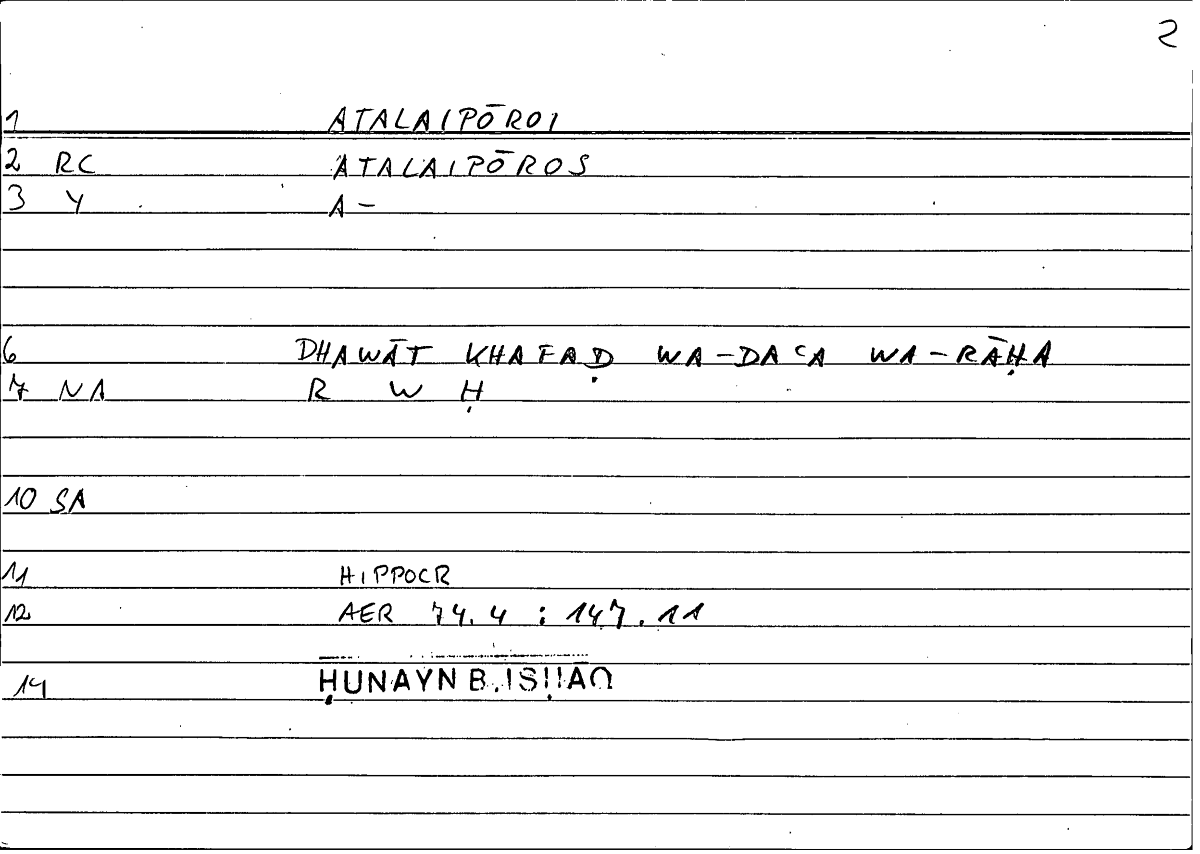 2
1 ATALAIPŌROI
2 RC ATALAIPŌROS
3 Y A-
6 DHAWĀT KHAFAḌ WA-DAʿA WA-RĀḤA
7 NA R W Ḥ
10 SA
11 HIPPOCR
12 AER 74.4 : 147.11
14 ḤUNAYN B. ISḤĀQ